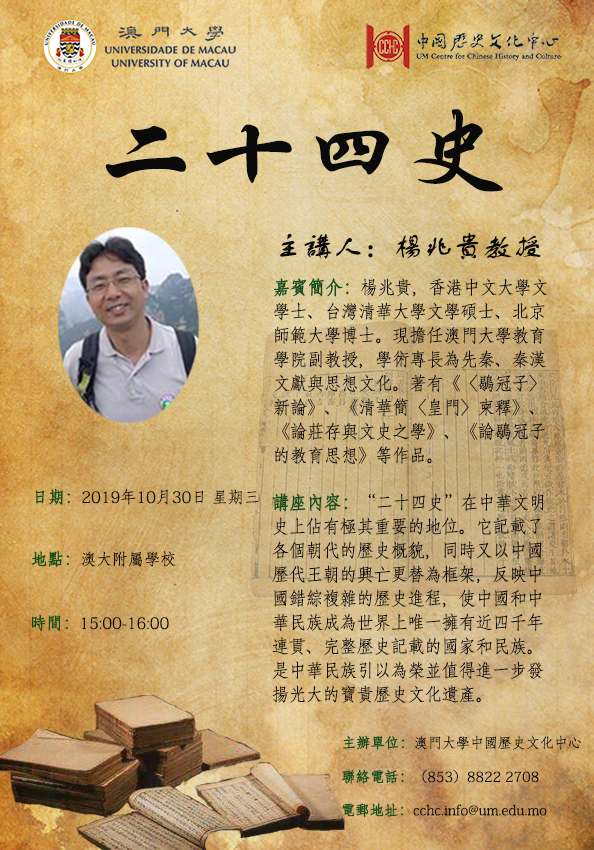 澳門大學
UNIVERSIDADE DE MACAU
UNIVERSITY OF MACAU
中國歷史文化中心
UM Centre for Chinese History and Culture
CCHC
二十四史
主講人：楊兆貴教授
嘉賓簡介：楊兆貴，香港中文大學文
學士、台灣清華大學文學碩士、北京
師範大學博士。現擔任澳門大學教育
學院副教授，學術專長為先秦、秦漢
文獻與思想文化。著有《〈鶡冠子〉
新論》、《清華簡〈皇門〉柬釋》、
《論莊存與文史之學》、《論鶡冠子
的教育思想》等作品。
日期：2019年10月30日 星期三
地點：澳大附屬學校
時間：15:00-16:00
講座內容：“二十四史”在中華文明
史上佔有極其重要的地位。它記載了
各個朝代的歷史概貌，同時又以中國
歷代王朝的興亡更替為框架，反映中
國錯綜複雜的歷史進程，使中國和中
華民族成為世界上唯一擁有近四千年
連貫、完整歷史記載的國家和民族。
是中華民族引以為榮並值得進一步發
揚光大的寶貴歷史文化遺產。
主辦單位：澳門大學中國歷史文化中心
聯絡電話：（853）8822 2708
電郵地址：cchc.info@um.edu.mo